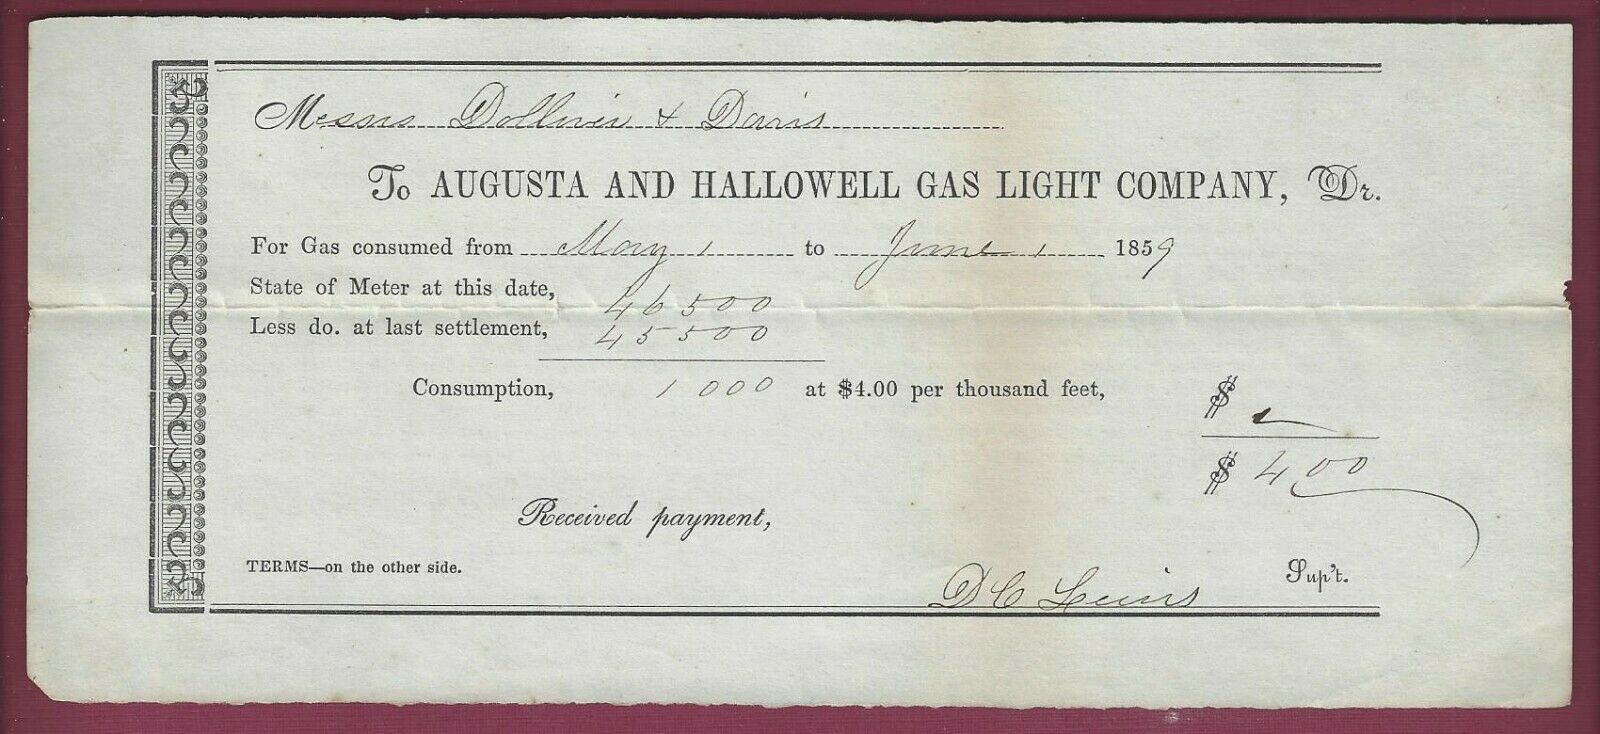 Messrs Dolliver & Davis
To AUGUSTA AND HALLOWELL GAS LIGHT COMPANY, Dr.
For Gas consumed from May 1 to June 1 1859
State of Meter at this date, 46500
Less do. at last settlement, 45500
Consumption, 1000 at $4.00 per thousand feet, $
$ 4 00
Received payment,
TERMS—on the other side.
D C Lewis Sup't.